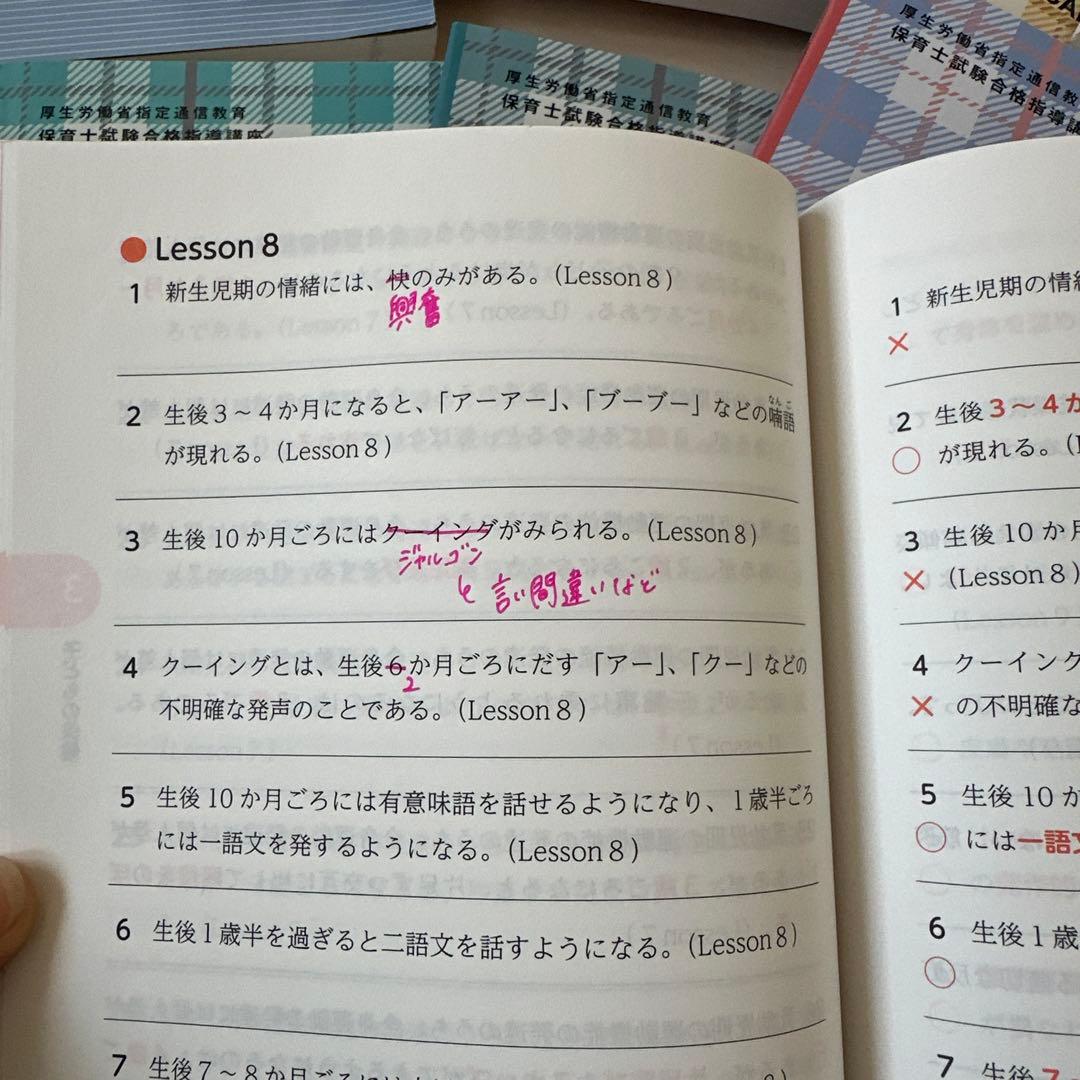 厚生労働省指定通信教育
保育士試験合格指導講座
厚生労働省指定通信教育
保育士試験合格指導講座
厚生労働省指定通信教育
保育士試験合格指導講
Lesson 8
1 新生児期の情緒には、快のみがある。(Lesson 8)
興奮
2 生後3〜4か月になると、「アーアー」、「ブーブー」などの喃語
なんご
が現れる。(Lesson 8)
3 生後10か月ごろにはクーイングがみられる。(Lesson 8)
ジャルゴン
言い間違いなど
4 クーイングとは、生後6か月ごろにだす「アー」、「クー」などの
2
不明確な発声のことである。(Lesson 8)
5 生後10か月ごろには有意味語を話せるようになり、1歳半ごろ
には一語文を発するようになる。(Lesson 8)
6 生後1歳半を過ぎると二語文を話すようになる。(Lesson 8)
7 生後7〜8か月ごろに
1 新生児期の情緒
×
2 生後3〜4か
○ が現れる。(
3 生後10か月
× (Lesson 8)
4 クーイング
× の不明確な
5 生後10か
○ には一語文
6 生後1歳
○
7 生後7